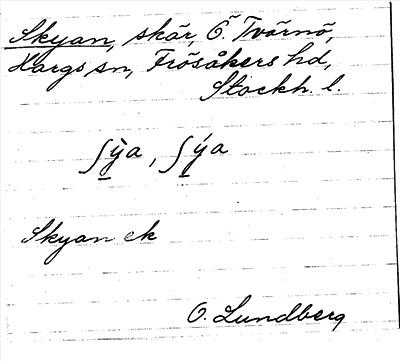 Skyan, skär, Ö. Tvärnö,
Hargs sn, Frösåkers hd,
Stockh. l.
ʃỳa, ʃýa
Skyan ek
O. Lundberg